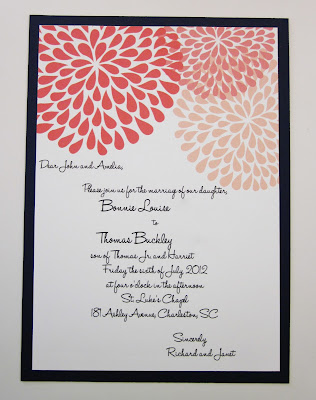 Dear John and Amelia,
Please join us for the marriage of our daughter,
Bonnie Louise
to
Thomas Buckley
son of Thomas Jr. and Harriet
Friday the sixth of July 2012
at four o'clock in the afternoon
St. Luke's Chapel
181 Ashley Avenue, Charleston, SC
Sincerely
Richard and Janet